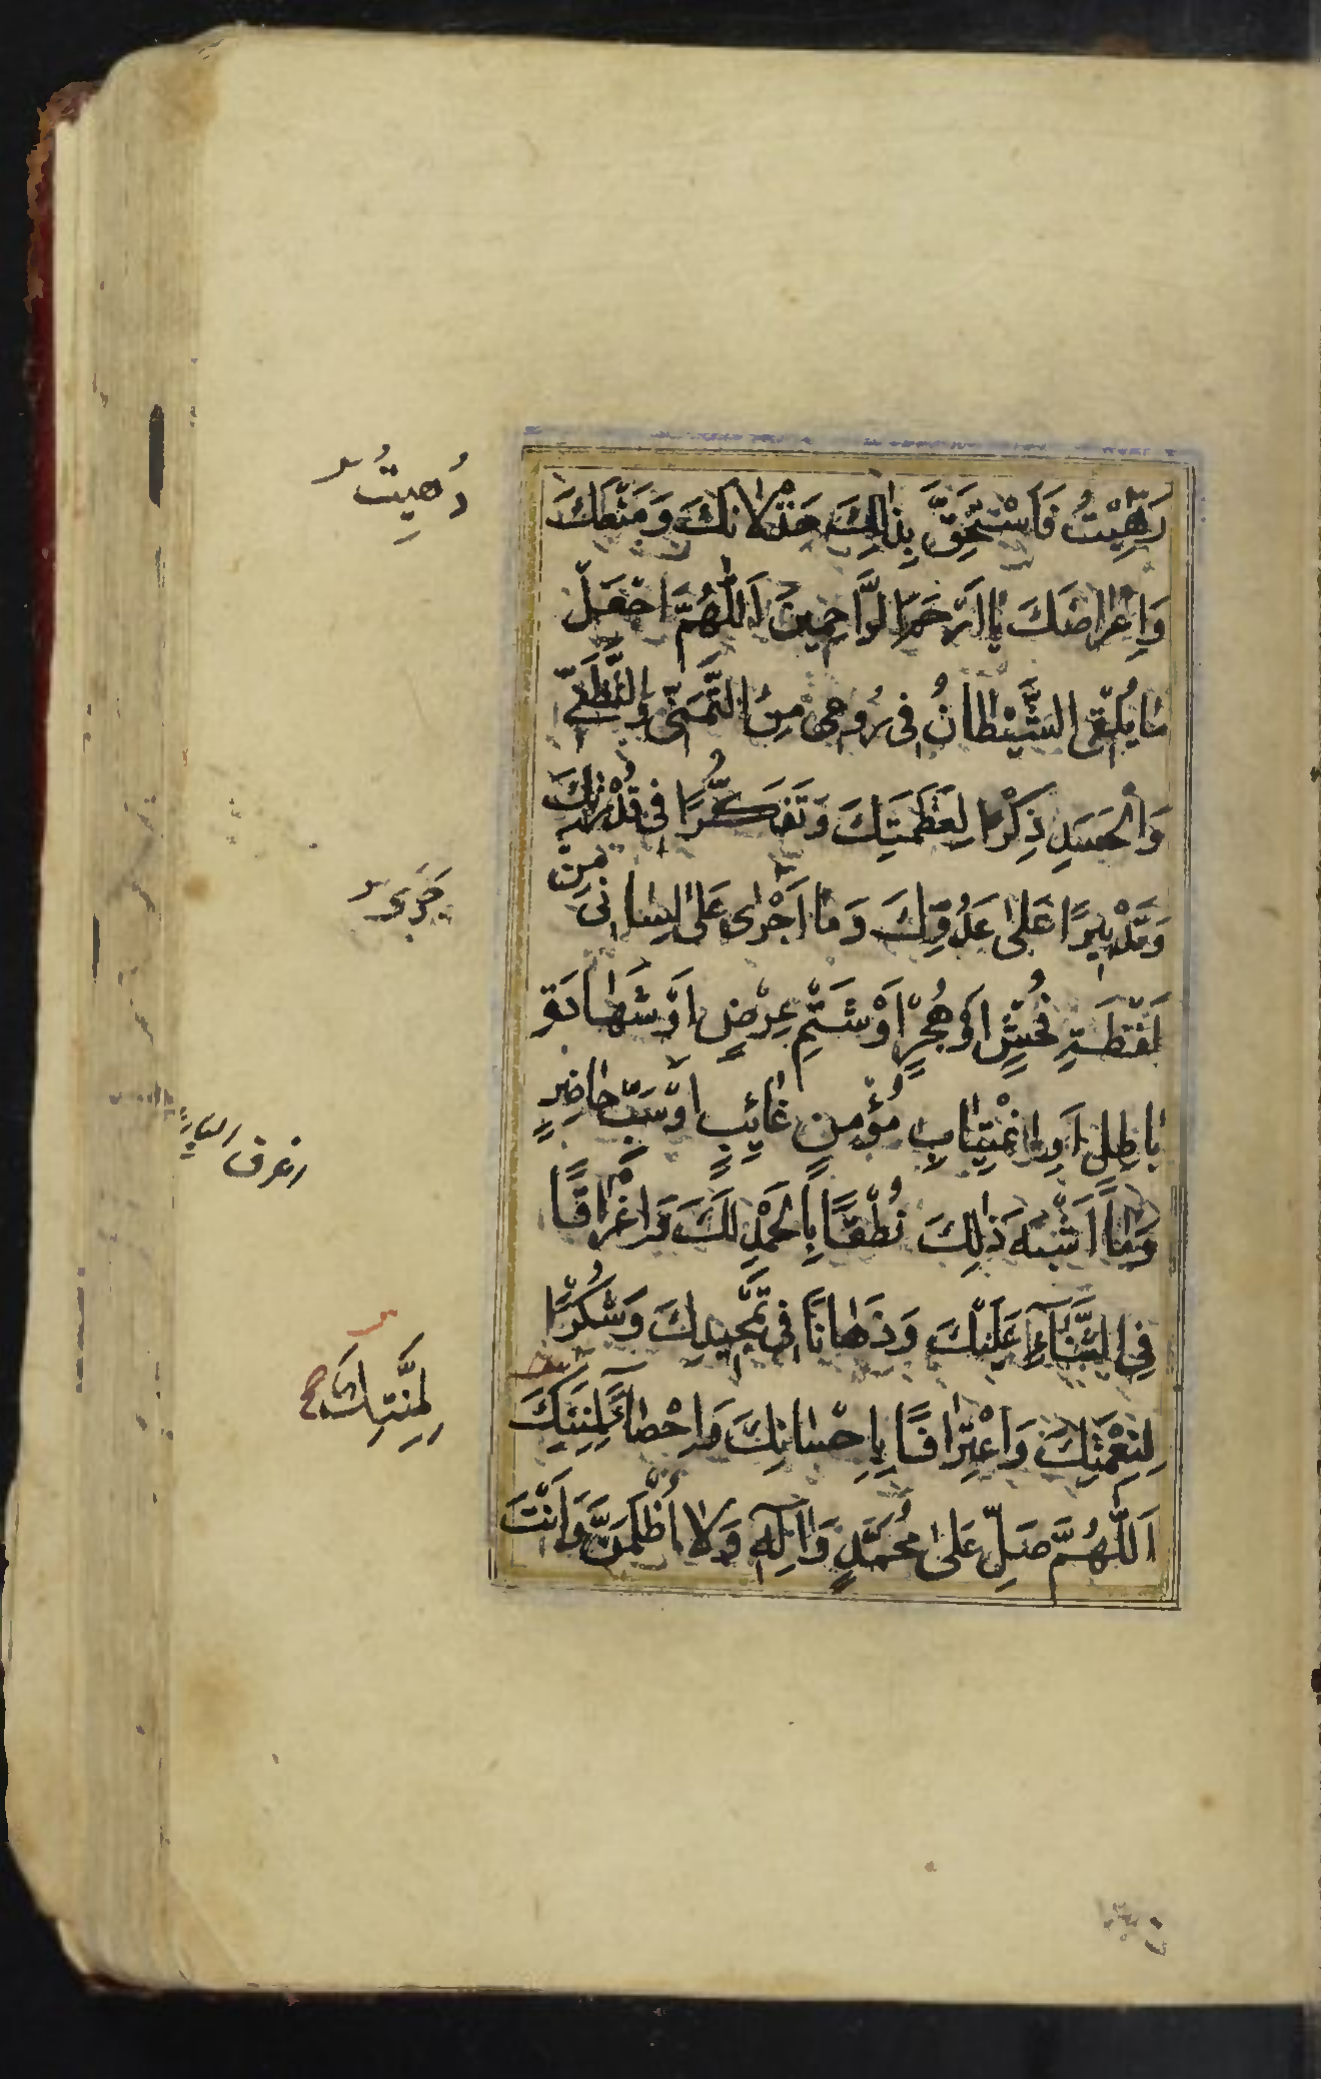 رَهِبْتُ فَاَسْتَحِقَّ بِذٰلِكَ خِذْلَانَكَ وَمَنْعَكَ
وَاِعْرَاضَكَ يٰا اَرْحَمَ الرَّاحِمِينَ اَللّٰهُمَّ اجْعَلْ
مٰا يُلْقِى الشَّيْطَانُ فِى رُوعِى مِنَ التَّمَنِّى وَالتَّظَنِّى
وَالْحَسَدِ ذِكْرًا لِعَظَمَتِكَ وَتَفَكُّرًا فِى قُدْرَتِكَ
وَتَدْبِيرًا عَلٰى عَدُوِّكَ وَمٰا اَجْرٰى عَلٰى لِسٰانِى مِنْ
لَفْظَةِ فُحْشٍ اَوْ هُجْرٍ اَوْ شَتْمِ عِرْضٍ اَوْ شَهٰادَةِ
بٰاطِلٍ اَوِ اغْتِيٰابِ مُؤْمِنٍ غٰائِبٍ اَوْ سَبِّ حٰاضِرٍ
وَمٰا اَشْبَهَ ذٰلِكَ نُطْقًا بِالْحَمْدِ لَكَ وَاِغْرٰاقًا
فِى الثَّنَآءِ عَلَيْكَ وَذَهٰابًا فِى تَمْجِيدِكَ وَشُكْرًا
لِنِعْمَتِكَ وَاعْتِرٰافًا بِاِحْسٰانِكَ وَاِحْصٰآءً لِمِنَنِكَ
اَللّٰهُمَّ صَلِّ عَلٰى مُحَمَّدٍ وَاٰلِهِ وَلَا اُظْلَمَنَّ وَاَنْتَ
رُهِبْتُ
جَرٰى
لِمِنَّتِكَ